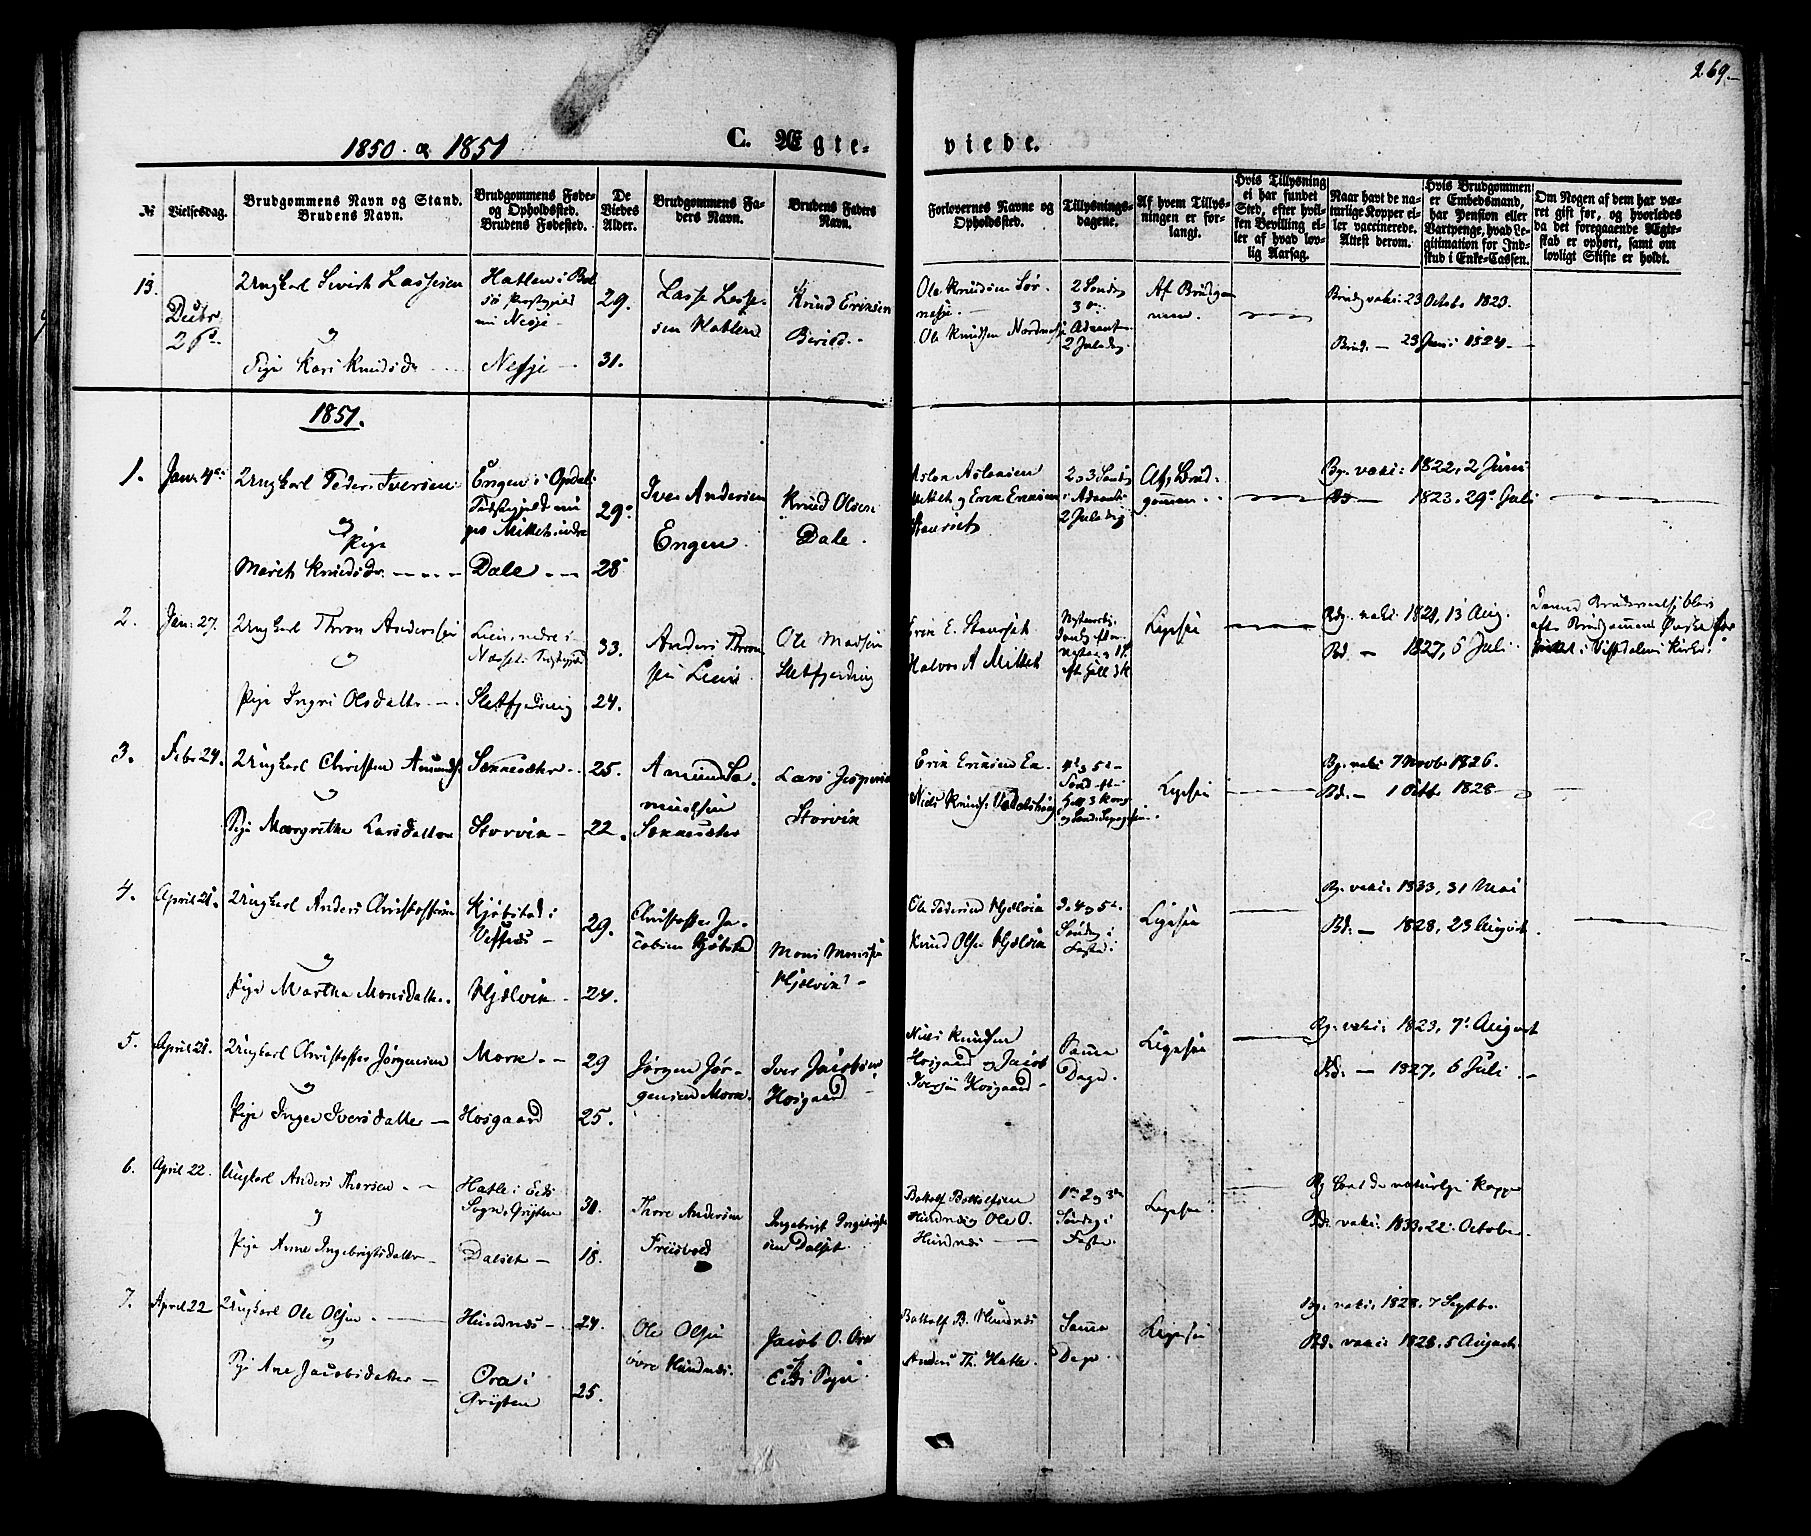 269.
1850 & 1851
C. Ægteviede.
№
Vielsesdag.
Brudgommens Navn og Stand.
Brudens Navn.
Brudgommens Føde-
og Opholdssted.
Brudens Fødested.
De
Viedes
Alder.
Brudgommens Fa-
ders Navn.
Brudens Faders
Navn.
Forlovernes Navne og
Opholdssted.
Tillysnings-
dagene.
Af hvem Tillys-
ningen er for-
langt.
Hvis Tillysning
ei har fundet
Sted, efter hvil-
ken Bevilling el-
ler af hvad lov-
lig Aarsag.
Naar havt de na-
turlige Kopper el-
ler vaccinerede.
Attest derom.
Hvis Brudgommen
er Embedsmand,
har Pension eller
Vartpenge, hvad Le-
gitimation for Ind-
skud i Enke-Cassen.
Om Nogen af dem har væ-
ret gift før, og hvorledes
da det foregaaende Ægte-
skab er ophørt, samt om
lovligt Skifte er holdt.
13.
Decbr
26
Ungkarl Sivert Lassesen
og
Pige Kari Knudsdr
Hatlen i Bol
sø Præstegjeld
nu Nesje
Nesje
29.
31.
Lasse Lasse-
sen Hatlen
Knud Eriksen
Ole Knudsen Sør-
nesje.
Ole Knudsen Nordnesje
2 Søndag
3
Advent
2 Juledag
Af Brudgom
men.
Brudg vaks: 23 Octobr 1820.
Brud. — 23 Juni 1824.
1851.
1.
Jan: 4
Ungkarl Peder Iversen
og
Pige
Marith Knudsdr.
Engen i Opdal
Præstegjeld nu
paa Mittet indre
Dale
29
28
Iver Andersen
Engen
Knud Olsen
Dale.
Aslon Aslonsen
Mittet og Erik Eriksen
Staurset
2 og 3 Sønd
i Advent
2 Juledag
Af Brud-
gommen.
Bg. vaks: 1822. 2 Juni
Bd — 1823. 29 Juli
2.
Jan: 27.
Ungkarl Thron Anderssen
og
Pige Ingri Olsdatter
Lien, nedre i
Nesset Præstegjeld
Sletfjerding
33.
24.
Anders Thron
sen Lien
Ole Madsen
Sletfjerding
Erik E. Staurset
Halvor A Mittet
Nytaarsdag
Søndag efter
Ligesaa
Bdg. vaks: 1821, 13 Aug.
Bd. — 1827, 6 Juli.
efter Brudgommens Ønske
i Vistdalens Kirke.
3.
Febr 24.
Ungkarl Christen Amunds.
og
Pige Margrethe Larsdatter
Sønnesæter
Storvik
25.
22.
Amund Sa-
muelsen
Sønnesæter
Lars Jespersen
Storvik
Erik Eriksen En
Niels Knuds.
4 og 5
Sønd eft:
Hell 3 Kong
Ligesaa
Bg. vaks: 7 Novbr 1826.
Bd. — 1 Octb 1828
4.
April 21.
Ungkarl Anders Christoffersen
og
Pige Martha Monsdatter
Kjøbstad i
Vestnes
Hjelvik
29.
24.
Christoffer Ja-
cobsen Kjøbstad
Mons Monsen
Hjelvik
Ole Pedersen Hjelvik
Knud Olsen Hjelvik
3. 4 og 5
Søndag i
Faste.
Ligesaa
Bg. vaks: 1833, 31 Mai
Bd. — 1828, 23 August.
5.
April 21.
Ungkarl Christoffer Jørgensen
og
Pige Inger Iversdatter
Mork
Horsgaard
29
25.
Jørgen Jør-
gensen Mork.
Iver Jacobsen
Horsgaard
Niels Knudsen
Horsgaard og Jacob
Iversen Horsgaard
Samme
Dage.
Ligesaa
Bg. vaks: 1823, 7 August
Bd. — 1827, 6 Juli.
6.
April 22.
Ungkarl Anders Thoresen
og
Pige Anne Ingebrigtsdatter
Hatle i Eids
Sogn, Grytten
Dalset
31.
18.
Thore Andersen
Friisvold
Ingebrigt Ingebrigt
sen Dalset.
Bottolf Bottolfsen
Hundnes og Ole O.
Hundnes
1 2 og 3
Søndag i
Faste.
Ligesaa
Bg havt de naturlige Kopper
Bd. vaks: 1833. 22 October
7.
April 22
Ungkarl Ole Olsen
og
Pige Ane Jacobsdatter
Hundnes
Ora i
Grytten
24.
25.
Ole Olsen
øvre Hundnes.
Jacob O. Ora
Eids Sogn
Bottolf B. Hundnes
Anders Th. Hatle.
Samme
Dage.
Ligesaa
Bg. vaks: 1828. 7 Septbr
Bd. vaks: 1828. 5 August